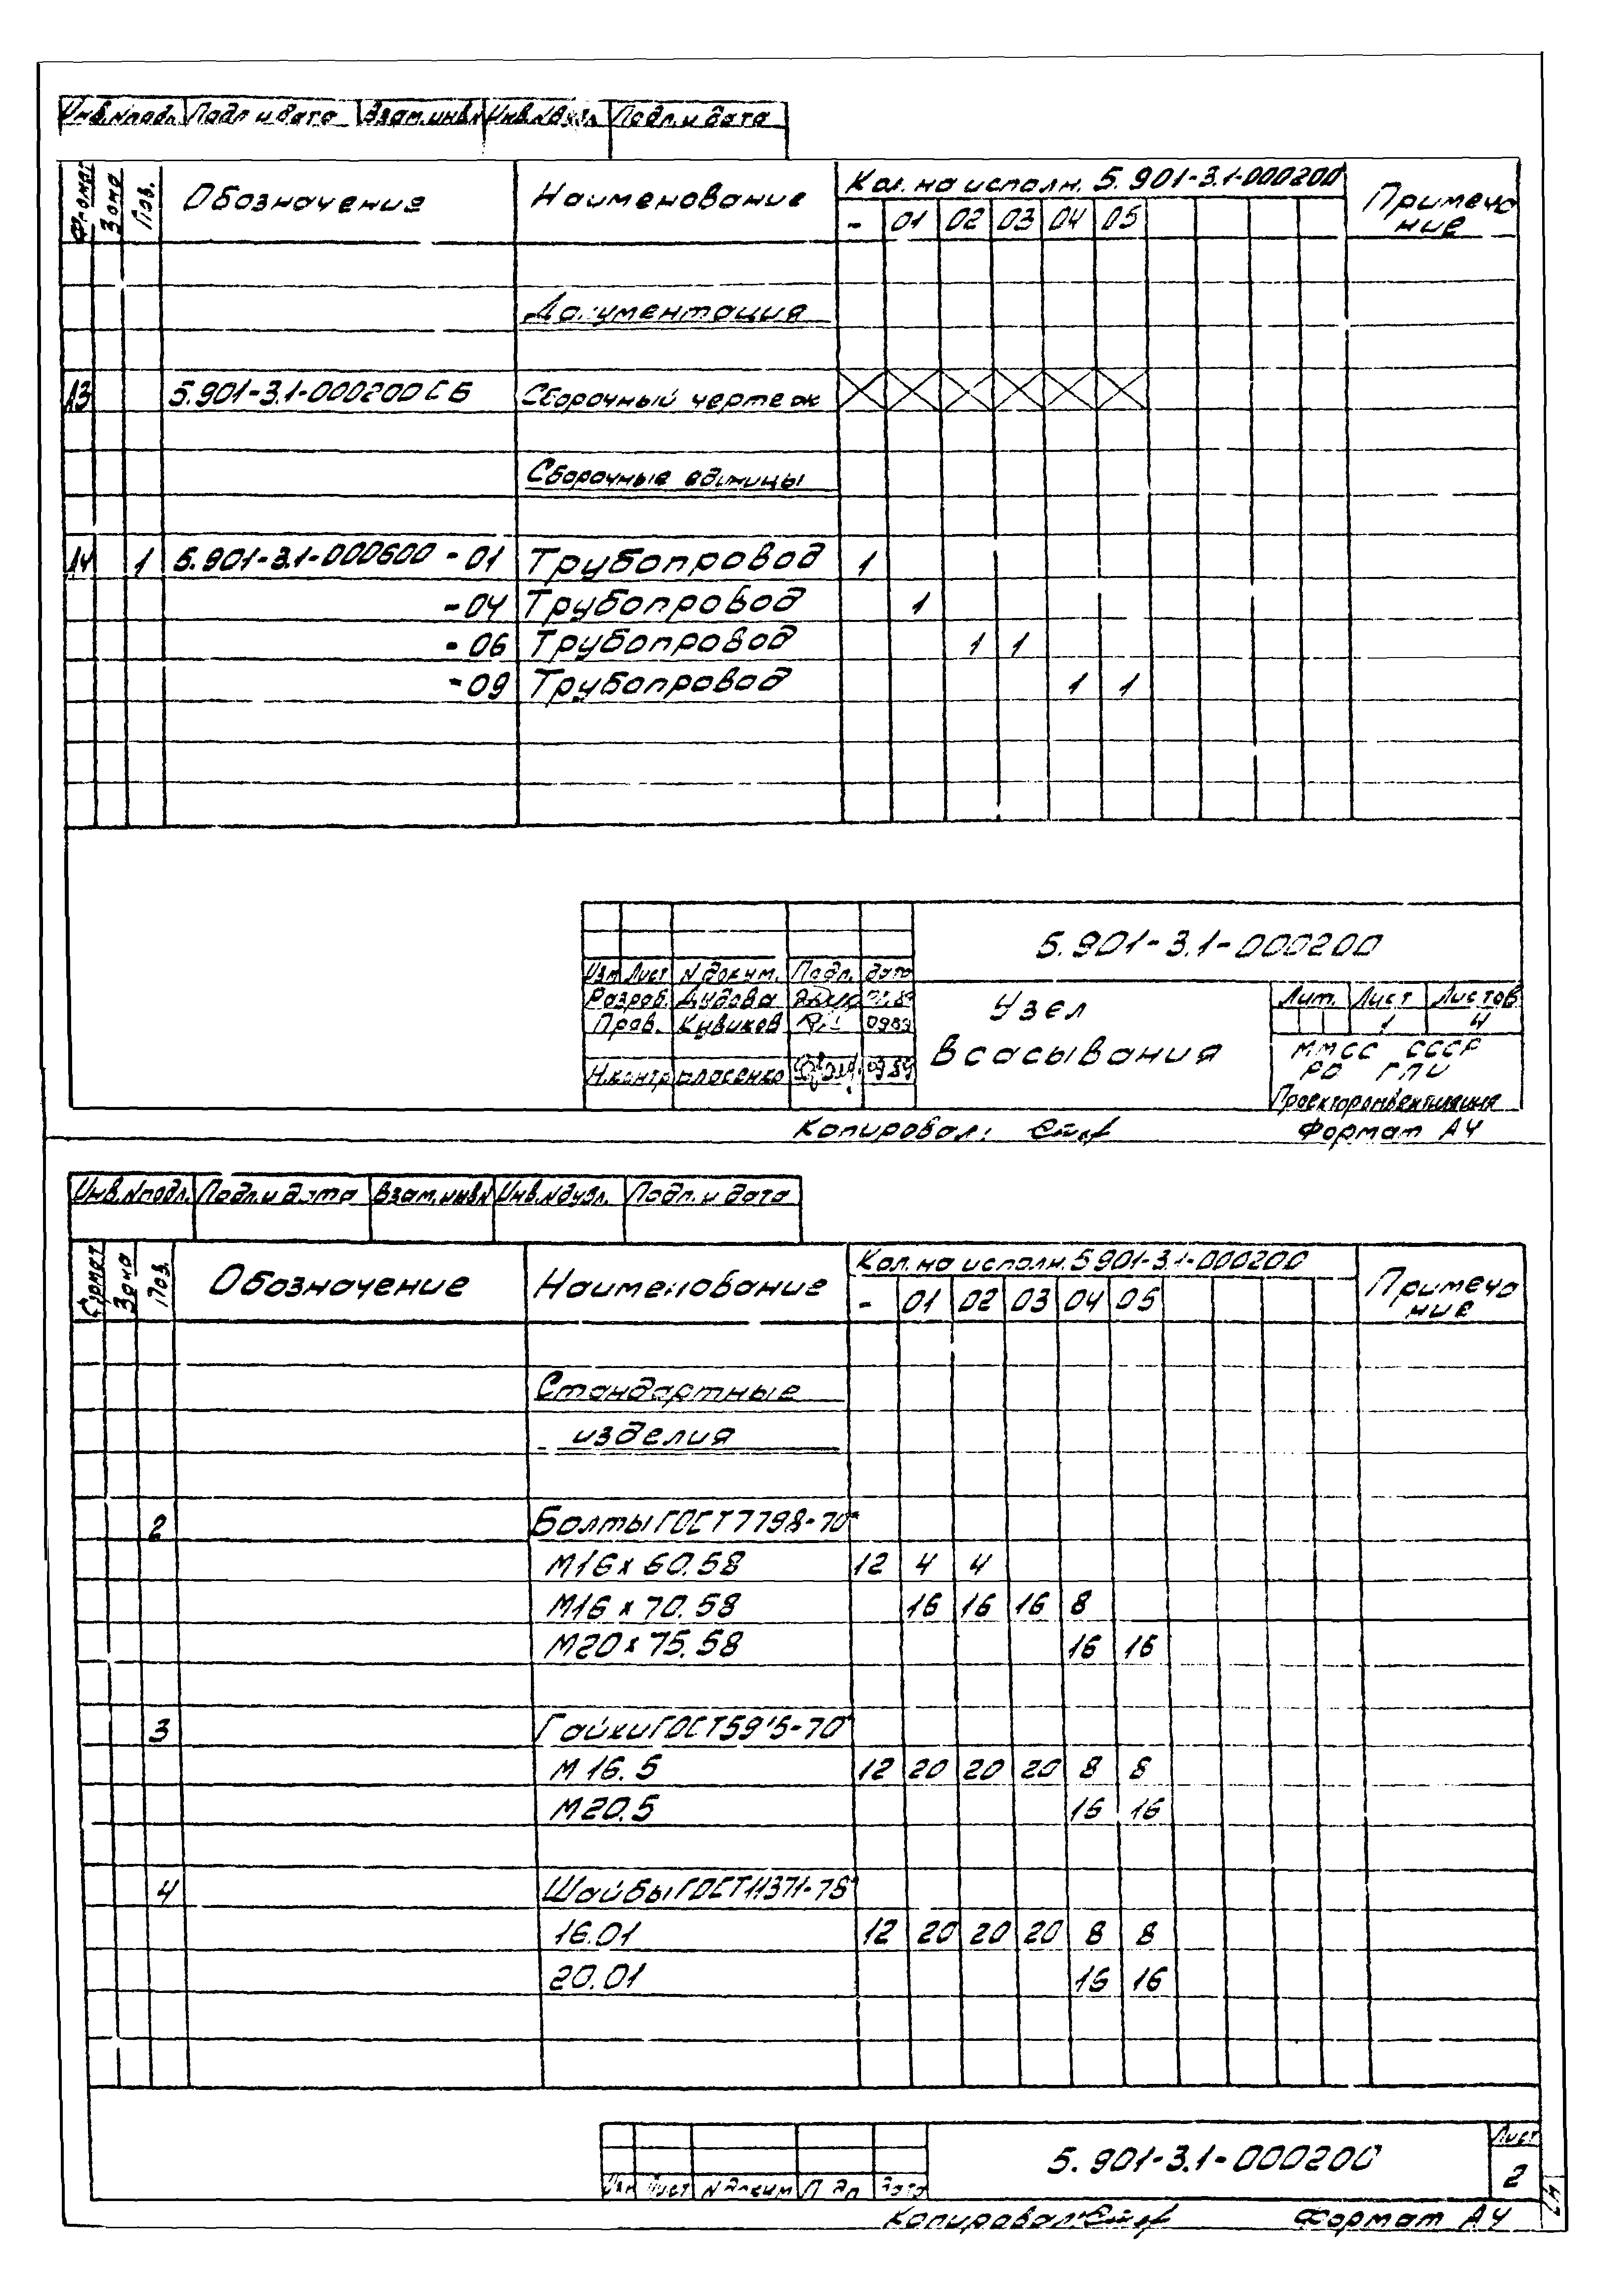 Инв.Nподл. Подп и дата Взам.инв.N Инв.Nдубл. Подп. и дата
Формат Зона Поз. Обозначение Наименование Кол. на исполн. 5.901-3.1-000200 Примеча
ние
- 01 02 03 04 05
Документация
А3 5.901-3.1-000200 СБ Сборочный чертеж
Сборочные единицы
А4 1 5.901-3.1-000600 - 01 Трубопровод 1
- 04 Трубопровод 1
- 06 Трубопровод 1 1
- 09 Трубопровод 1 1
5.901-3.1-000200
Изм Лист N докум. Подп. дата
Разраб. Дудова
Пров. Кувиков 0989
Н.контр Власенко 0989
Узел
всасывания
Лит. Лист Листов
1 4
ММСС СССР
РО ГПИ
Проектпромвентиляция
Копировал: Формат А4
Инв.Nподл. Подп. и дата Взам.инв.N Инв.Nдубл. Подп. и дата
Формат Зона Поз. Обозначение Наименование Кол. на исполн. 5.901-3.1-000200 Примеча
ние
- 01 02 03 04 05
Стандартные
изделия
2 Болты ГОСТ 7798-70*
М16 х 60.58 12 4 4
М16 х 70.58 16 16 16 8
М20 х 75.58 16 16
3 Гайки ГОСТ 5915-70*
М 16.5 12 20 20 20 8 8
М20.5 16 16
4 Шайбы ГОСТ 11371-78*
16.01 12 20 20 20 8 8
20.01 16 16
5.901-3.1-000200 Лист
2
Изм Лист N докум Подп Дата
Копировал: Формат А4